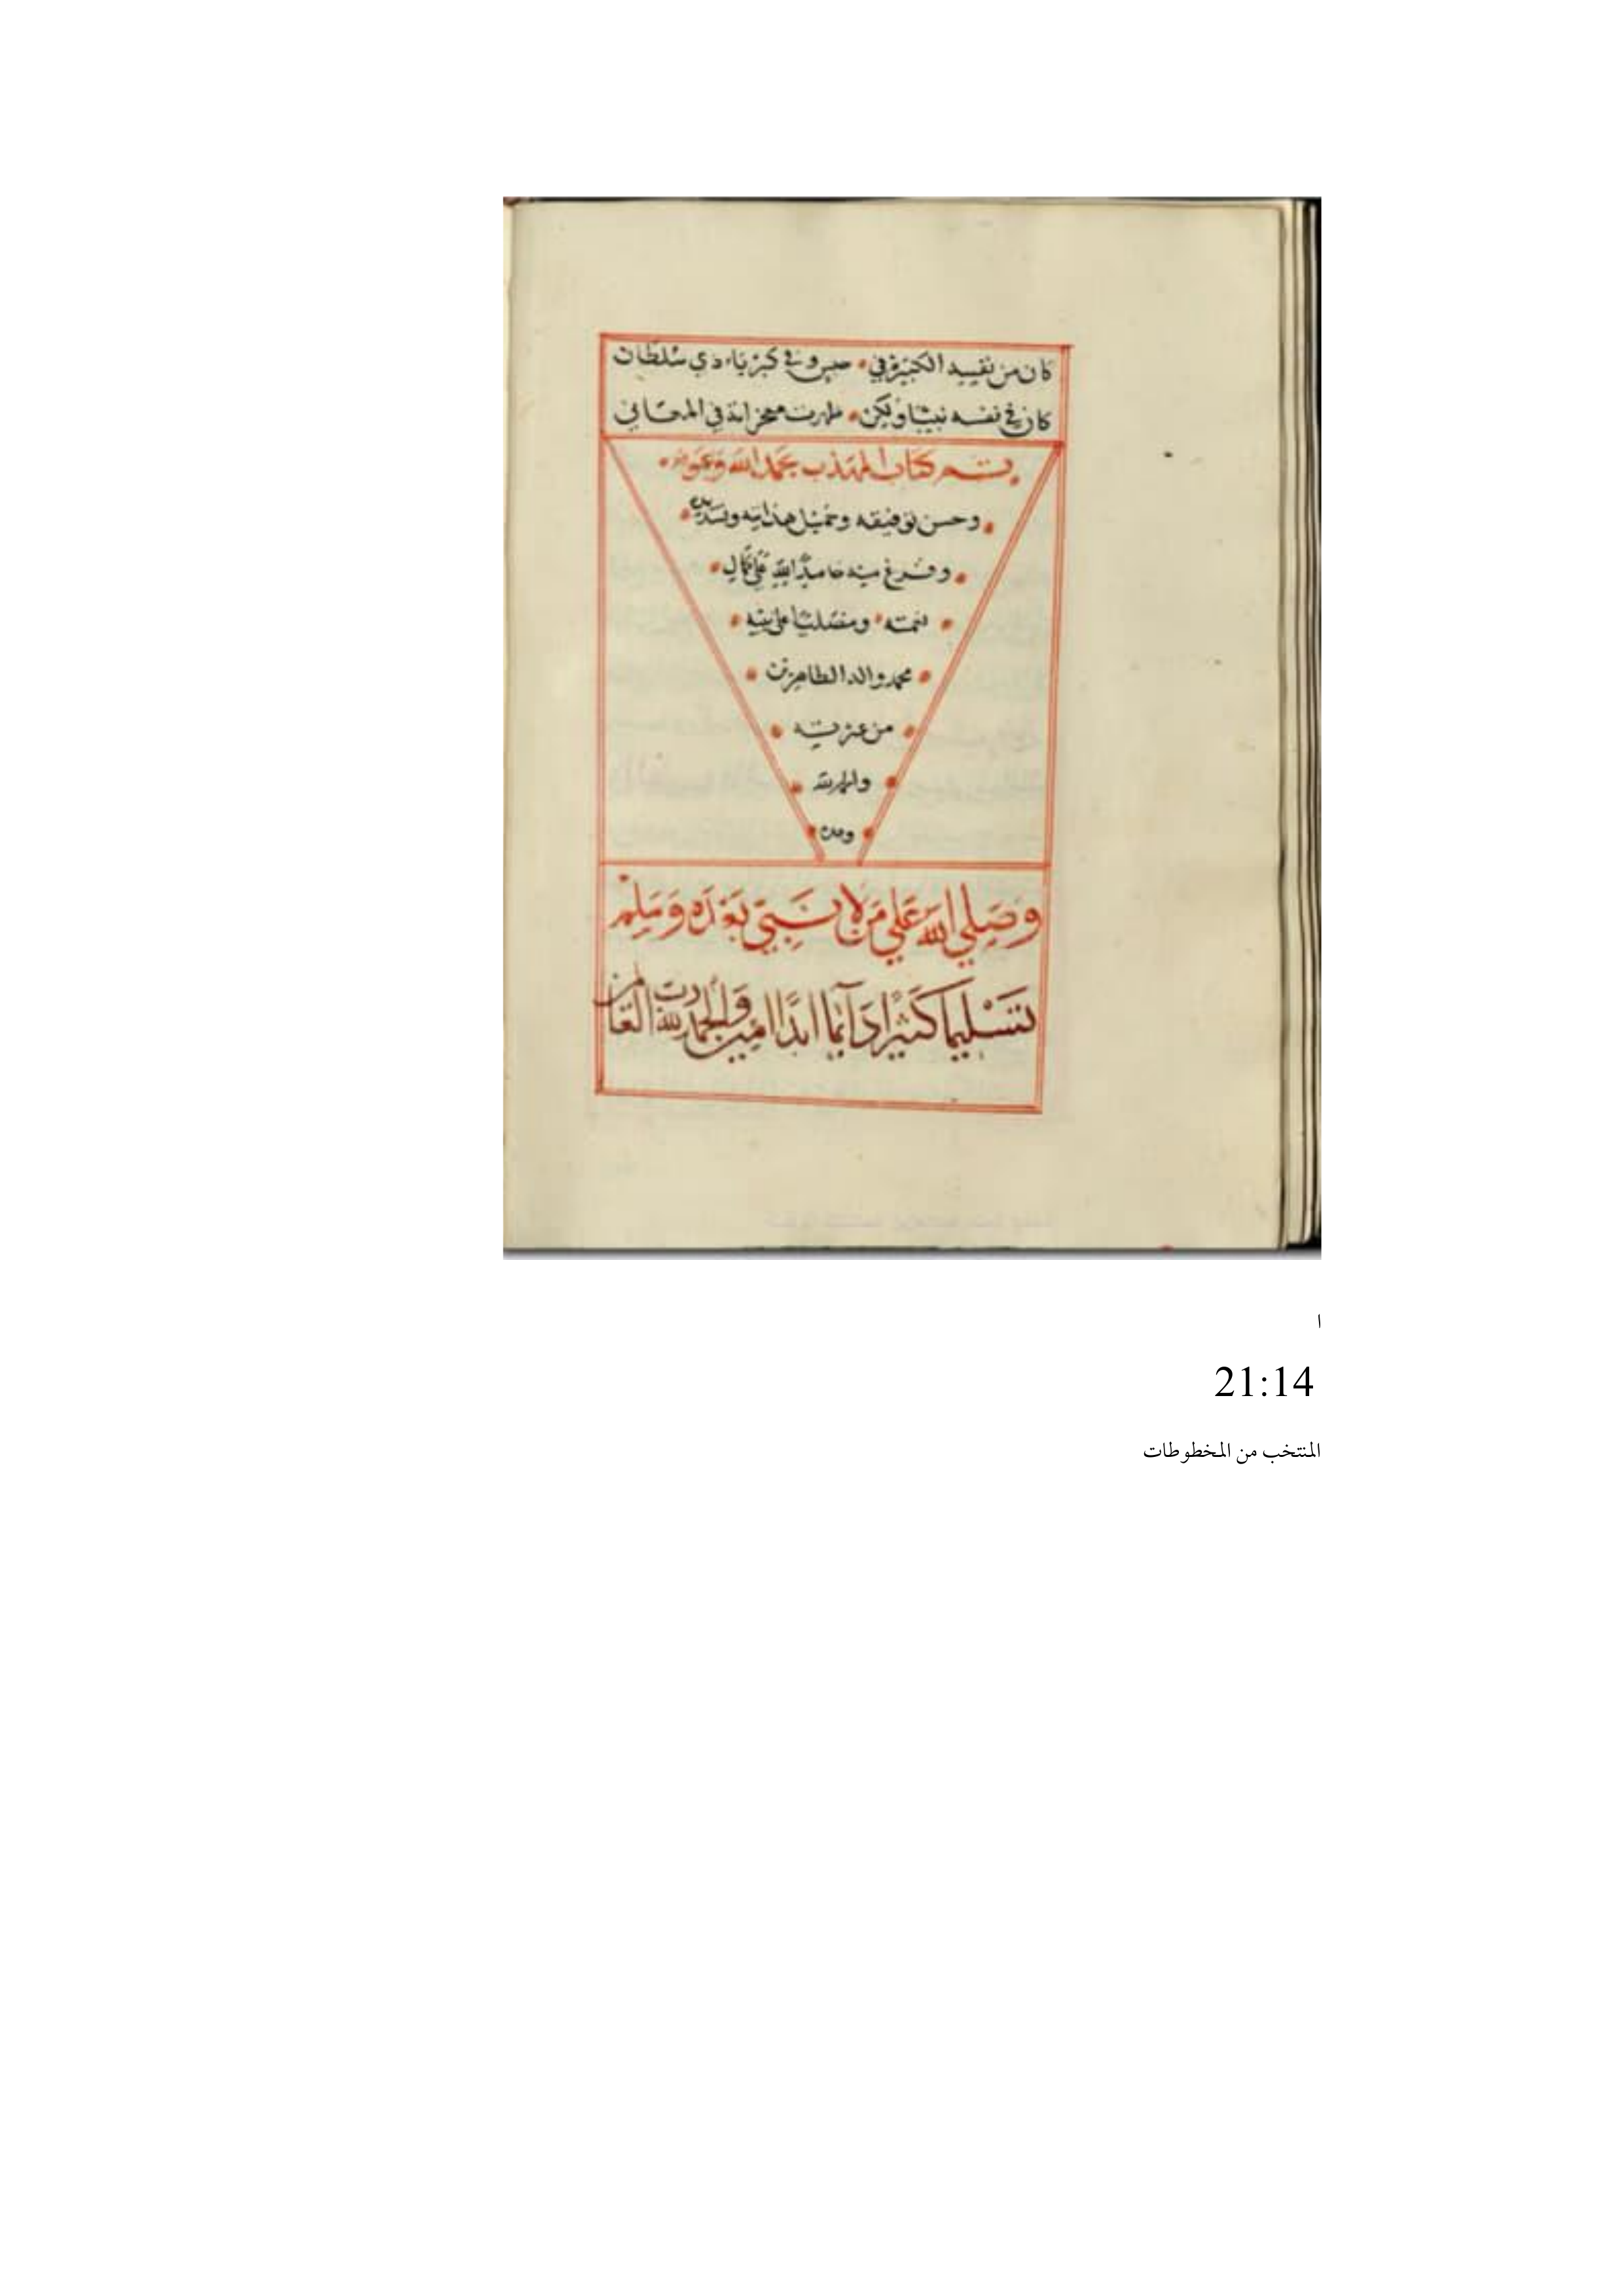 كان من نفسه الكبيرة في • جيش وفي كبرياء ذي سلطان
كان في نفسه نبيًا ولكن • ظهرت معجزاته في المعاني
تم كتاب المهذب بحمد الله وعونه
وحسن توفيقه وجميل هدايته وتسديده
وفرغ منه حامدًا لله على كمال
نعمته ومصليًا على نبيه
محمد واله الطاهرين
من عترته
والحمد لله
وحده
وَصَلي الله عَلي مَن لا نَبيّ بَعْدَه وَسَلم
تَسْليمًا كثيرًا دَآئمًا ابدًا امين وَالحمد لله رب العَالمين
ا
21:14
المنتخب من المخطوطات